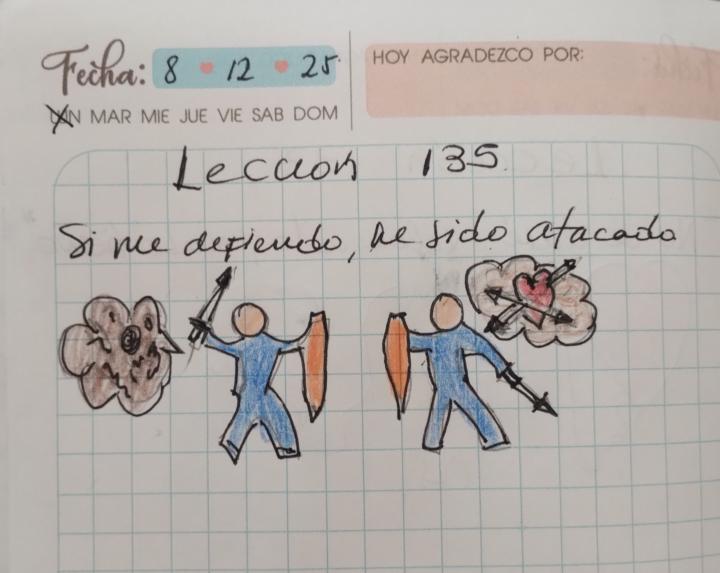 Fecha: 8 12 25
HOY AGRADEZCO POR:
LUN MAR MIE JUE VIE SAB DOM
Leccion 135.
Si me defiendo, he sido atacado